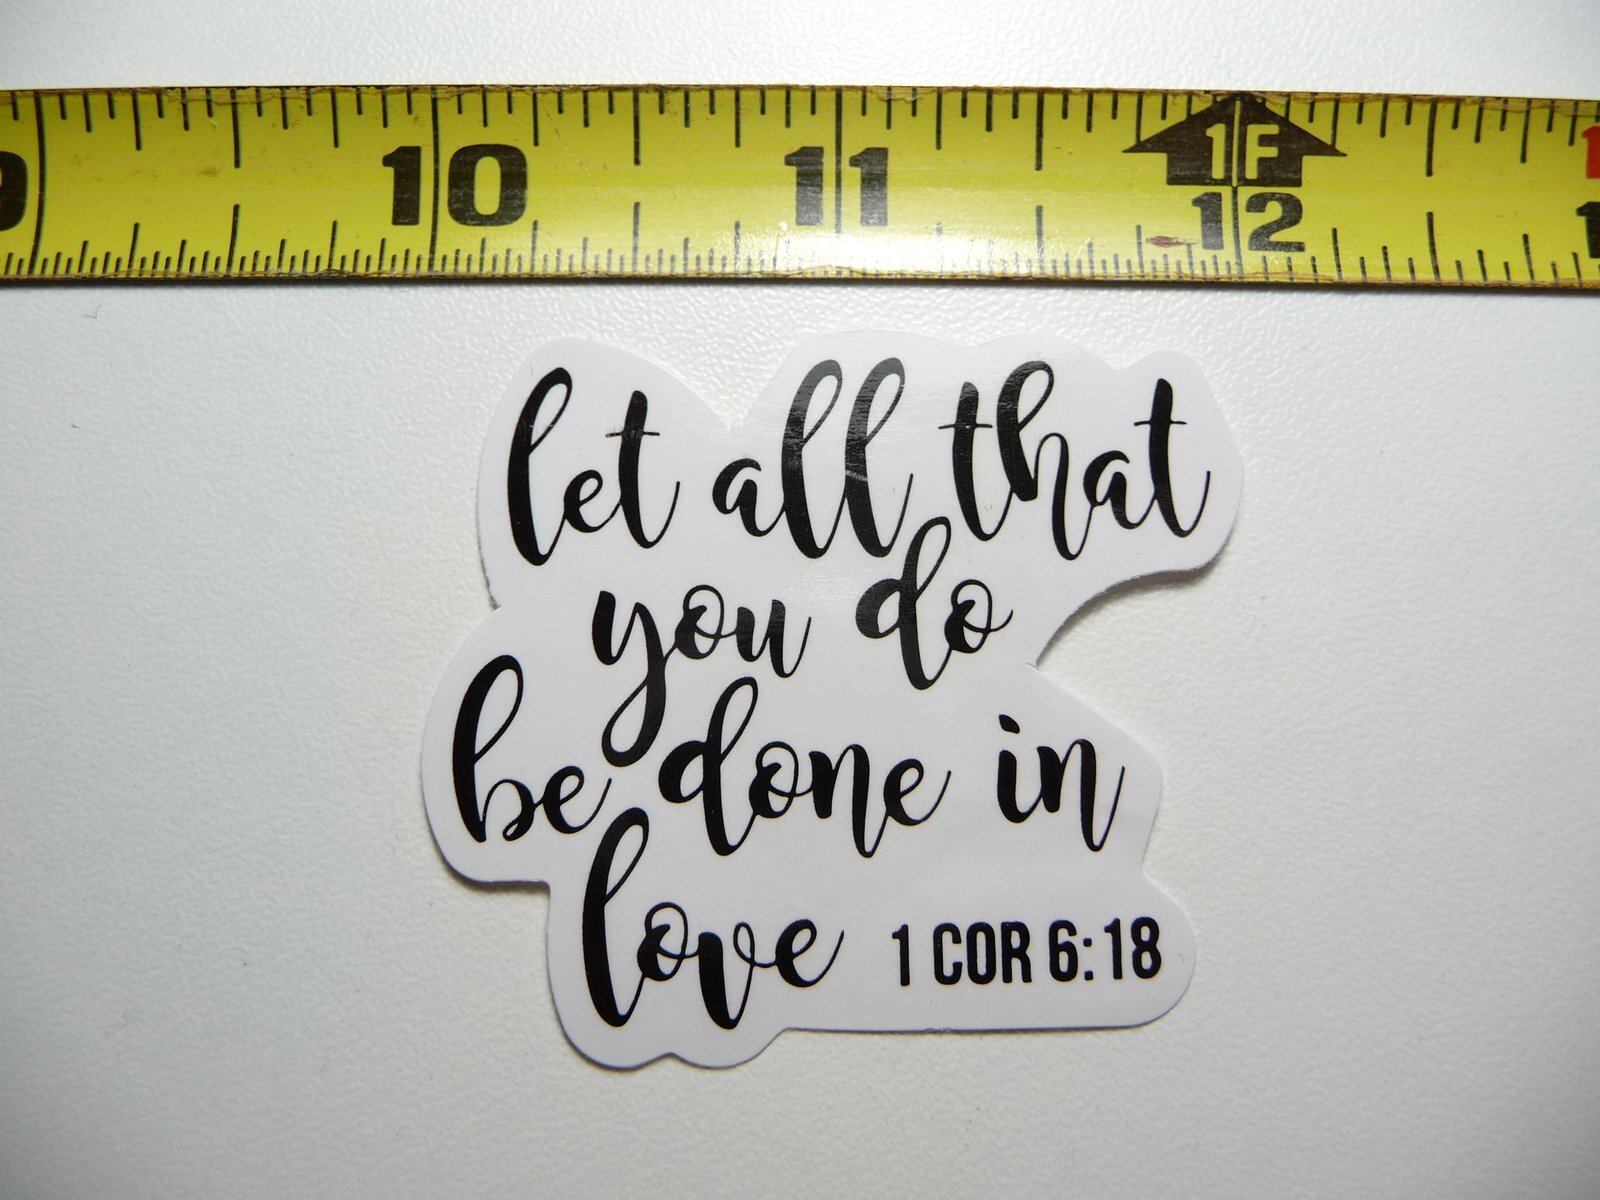 9 10 11 1F 12
let all that
you do
be done in
love 1 COR 6:18